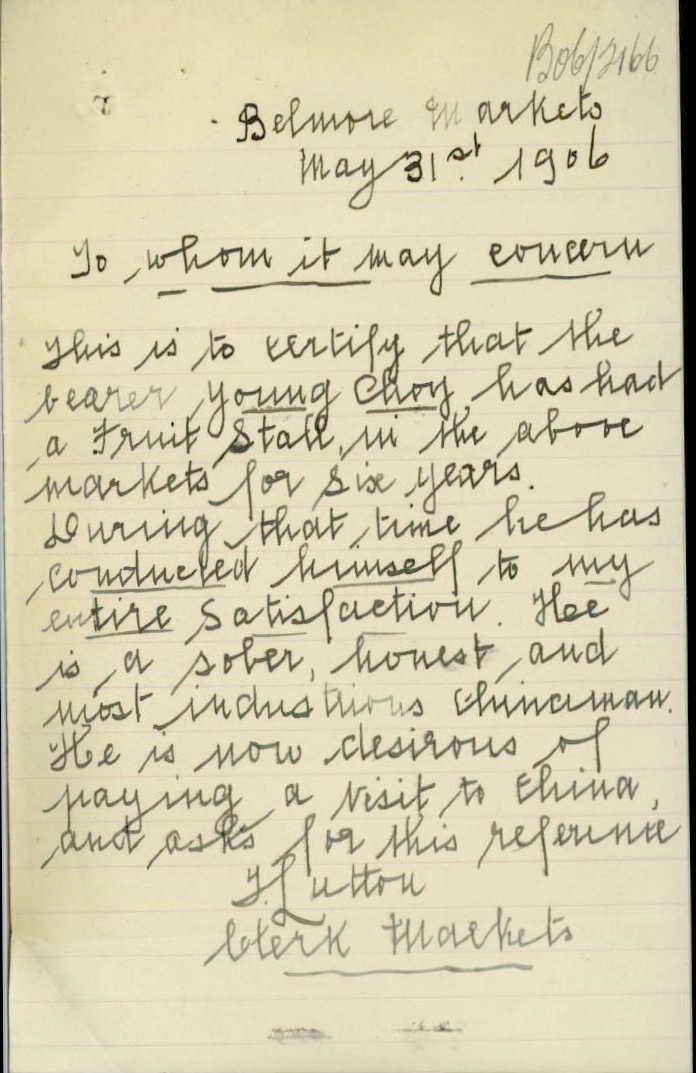 B06/3166
Belmore Markets
May 31st. 1906
To whom it may concern
This is to certify that the
bearer Young Choy, has had
a Fruit Stall, in the above
markets for six years.
During that time he has
conducted himself to my
entire satisfaction. Hee
is a sober, honest and
most industrious Chinaman.
He is now desirous of
paying a visit to China,
and asks for this reference
Lutton
Clerk Markets